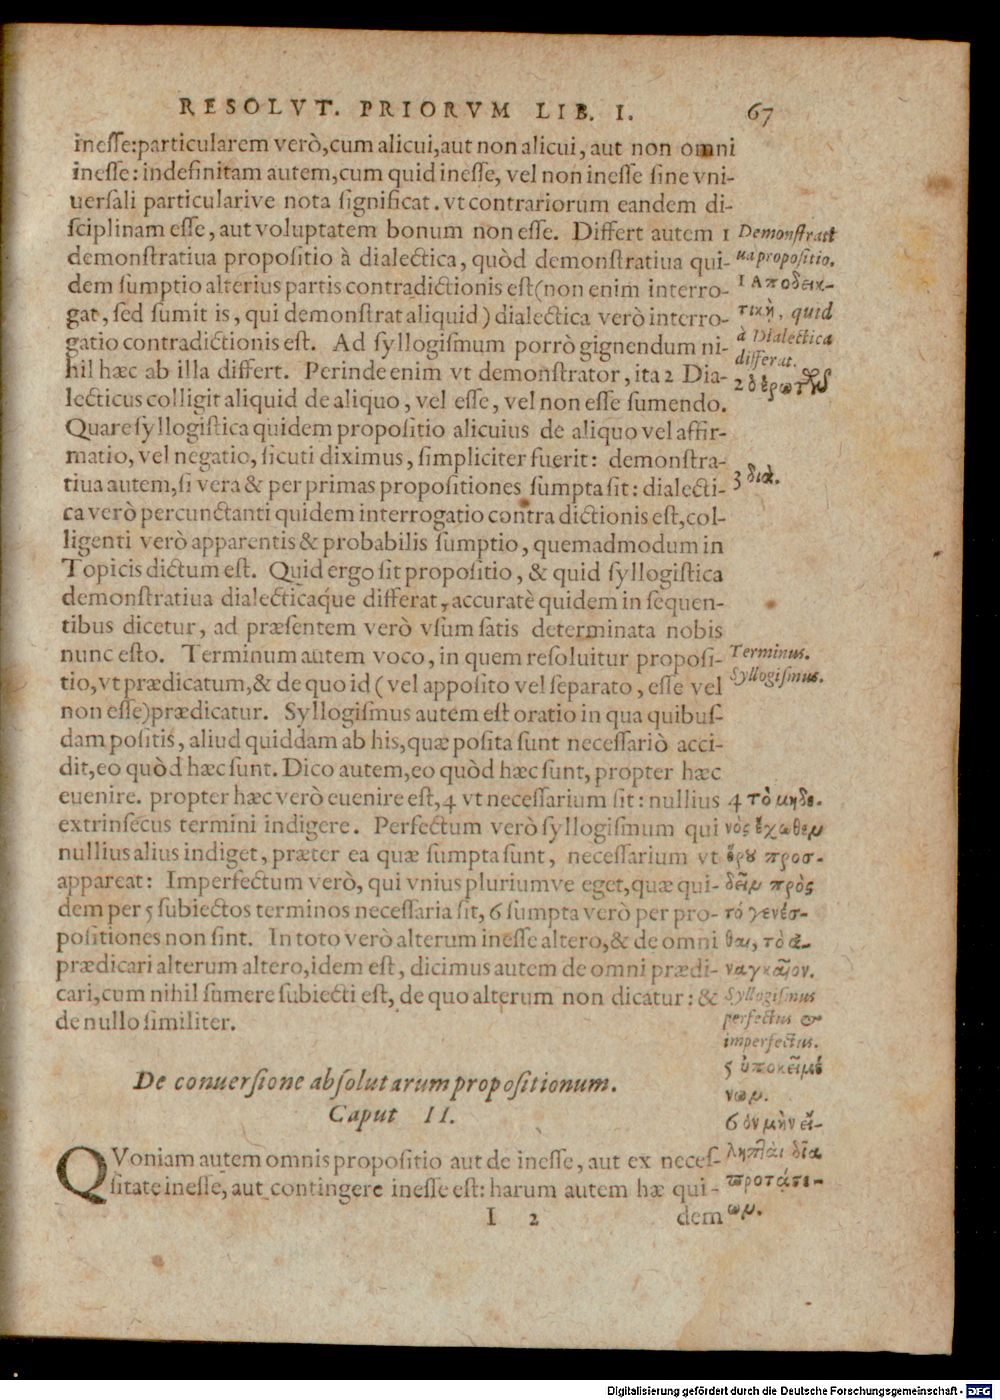 RESOLVT. PRIORVM LIB. I. 67
inesse: particularem verò, cum alicui, aut non alicui, aut non omni
inesse: indefinitam autem, cum quid inesse, vel non inesse sine vni-
uersali particularive nota significat. vt contrariorum eandem di-
sciplinam esse, aut voluptatem bonum non esse. Differt autem 1
demonstratiua propositio à dialectica, quòd demonstratiua qui-
dem sumptio alterius partis contradictionis est (non enim interro-
gat, sed sumit is, qui demonstrat aliquid) dialectica verò interro-
gatio contradictionis est. Ad syllogismum porrò gignendum ni-
hil hæc ab illa differt. Perinde enim vt demonstrator, ita 2 Dia-
lecticus colligit aliquid de aliquo, vel esse, vel non esse sumendo.
Quare syllogistica quidem propositio alicuius de aliquo vel affir-
matio, vel negatio, sicuti diximus, simpliciter fuerit: demonstra-
tiua autem, si vera & per primas propositiones sumpta sit: dialecti-
ca verò percunctanti quidem interrogatio contradictionis est, col-
ligenti verò apparentis & probabilis sumptio, quemadmodum in
Topicis dictum est. Quid ergo sit propositio, & quid syllogistica
demonstratiua dialecticaque differat, accuratè quidem in sequen-
tibus dicetur, ad præsentem verò vsum satis determinata nobis
nunc esto. Terminum autem voco, in quem resoluitur proposi-
tio, vt prædicatum, & de quo id (vel apposito vel separato, esse vel
non esse) prædicatur. Syllogismus autem est oratio in qua quibus-
dam positis, aliud quiddam ab his, quæ posita sunt necessariò acci-
dit, eo quòd hæc sunt. Dico autem, eo quòd hæc sunt, propter hæc
euenire. propter hæc verò euenire est, 4 vt necessarium sit: nullius
extrinsecus termini indigere. Perfectum verò syllogismum qui
nullius alius indiget, præter ea quæ sumpta sunt, necessarium vt
appareat: Imperfectum verò, qui vnius pluriumve eget, quæ qui-
dem per 5 subiectos terminos necessaria sit, 6 sumpta verò per pro-
positiones non sint. In toto verò alterum inesse altero, & de omni
prædicari alterum altero, idem est, dicimus autem de omni prædi-
cari, cum nihil sumere subiecti est, de quo alterum non dicatur: &
de nullo similiter.
De conuersione absolutarum propositionum.
Caput II.
QVoniam autem omnis propositio aut de inesse, aut ex neces-
sitate inesse, aut contingere inesse est: harum autem hæ qui-
I 2 dem
Demonstrati
ua propositio.
1 Αποδεικ-
τικὴ, quid
à Dialectica
differat.
3 διὰ.
Terminus.
Syllogismus.
4 τὸ μηδε-
νὸς ἔξωθεν
ὅρου προσ-
δεῖν πρὸς
τό γενέσ-
θαι, τὸ ἀ-
ναγκαῖον.
Syllogismus
perfectus &
imperfectus.
5 ὑποκειμέ
νων.
6 οὐ μὴν εἴ-
ληπται διὰ
προτάσε-
ων.
Digitalisierung gefördert durch die Deutsche Forschungsgemeinschaft - DFG